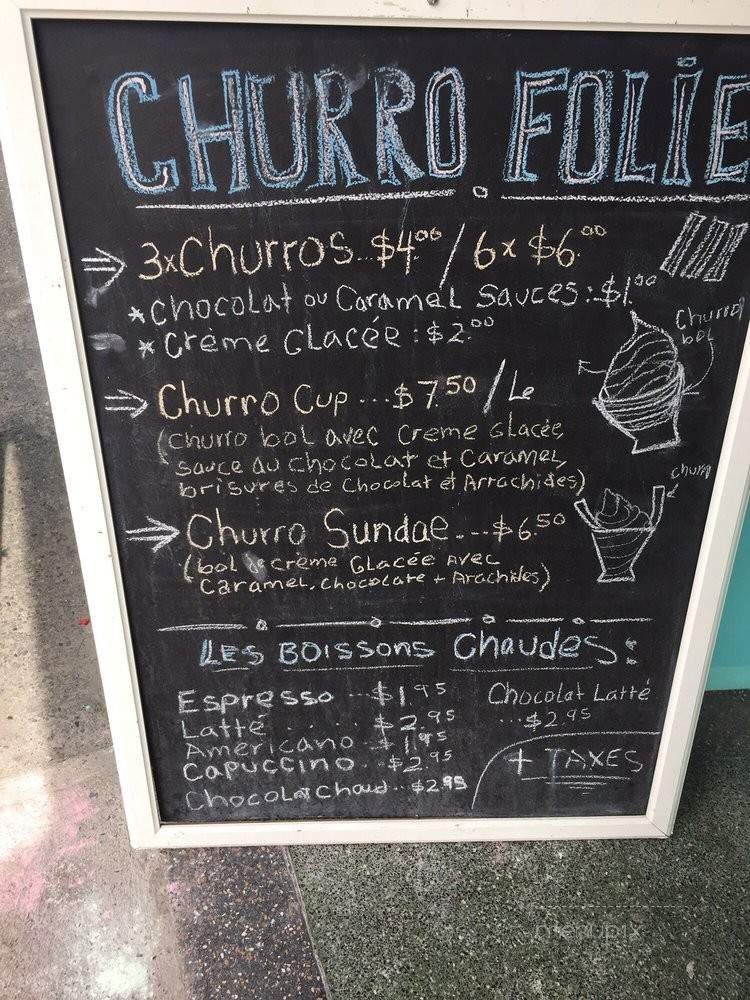 CHURRO FOLIE
3x Churros..$4.00 / 6x $6.00
*Chocolat ou Caramel Sauces:.$1.00
*Crème Glacée : $2.00
Churro bol
Churro Cup ...$7.50 / Le
(churro bol avec Creme glacée,
sauce au chocolat et Caramel,
brisures de Chocolat et Arrachides)
churro
Churro Sundae...$6.50
(bol de crème Glacée Avec
Caramel, chocolate + Arachides)
LES BOISSONS Chaudes:
Espresso ...$1.95
Latté ....$2.95
Americano ..$1.95
Capuccino..$2.95
Chocolat chaud..$2.95
Chocolat Latté
...$2.95
+ TAXES
menupix